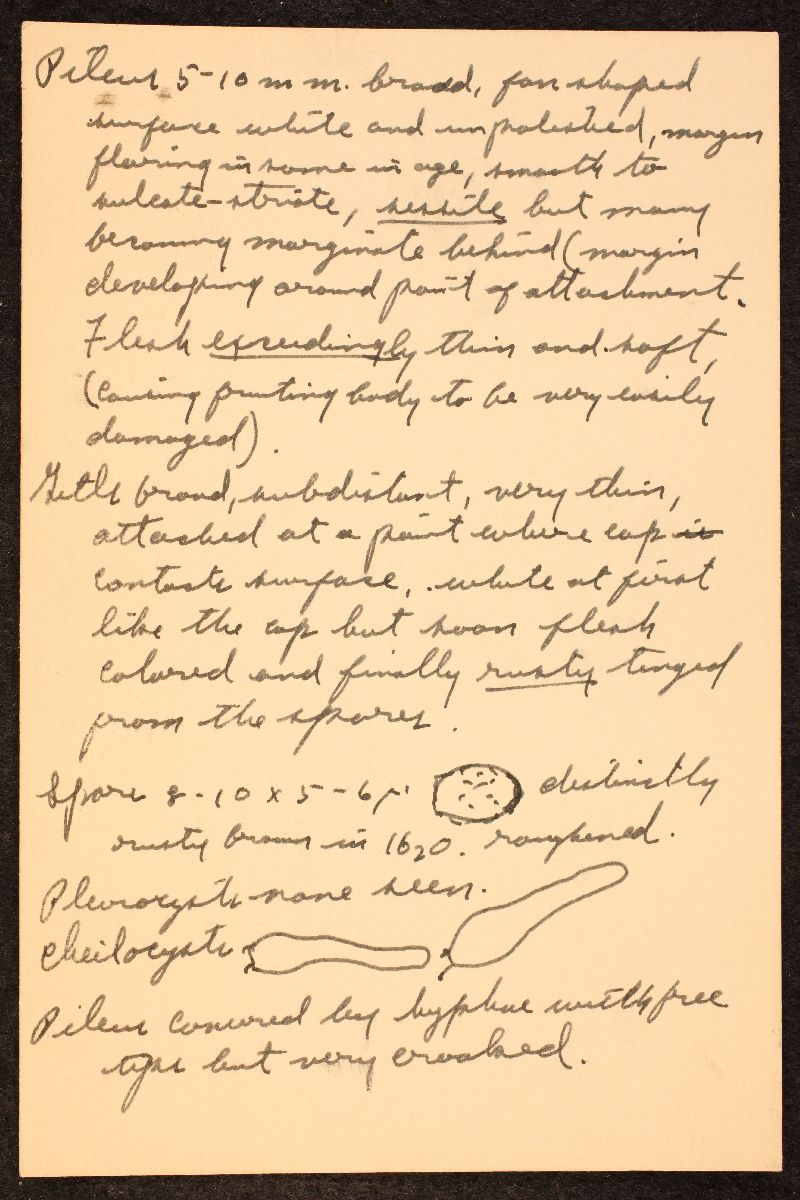 Pileus 5-10 m m. broad, fan shaped
surface white and unpolished, margin
flaring in some in age, smooth to
sulcate-striate, sessile but many
becoming marginate behind (margin
developing around point of attachment.
Flesh exceedingly thin and soft,
(causing fruiting body to be very easily
damaged).
Gills broad, subdistant, very thin,
attached at a point where cap is
contacts surface, white at first
like the cap but soon flesh
colored and finally rusty tinged
from the spores.
Spore 8-10 x 5-6µ distinctly
rusty brown in H2O. roughened.
Pleurocysts none seen.
Cheilocysts
Pileus covered by hyphae with free
tips but very crooked.